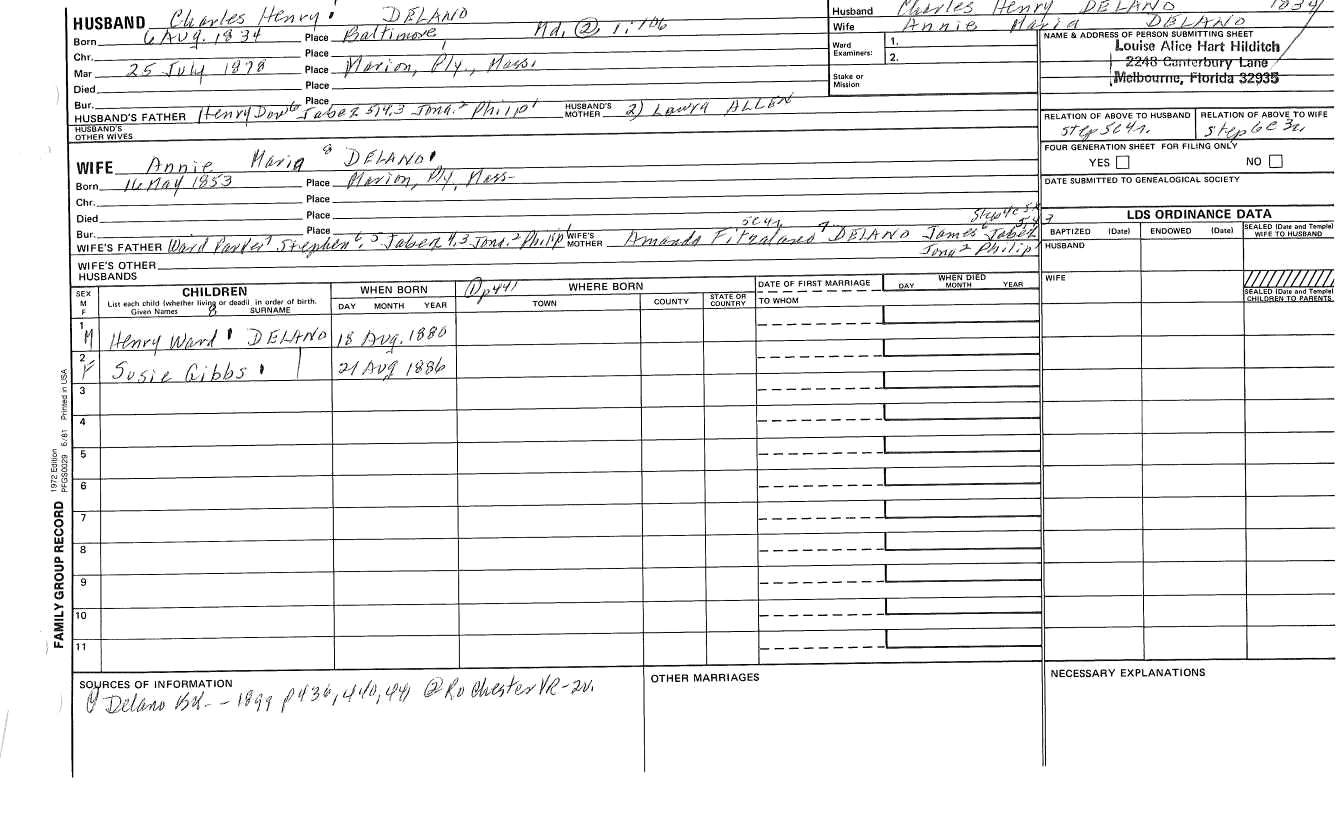 HUSBAND Charles Henry DELANO
Born 6 AUG. 1834 Place Baltimore Md. ② 1:106
Chr. Place
Mar 25 July 1878 Place Marion, Ply., Mass.
Died Place
Bur. Place
HUSBAND'S FATHER Henry 6 Jabez 5,4,3 Jona.2 Philip1 HUSBAND'S MOTHER 2) Laura ALLEN
HUSBAND'S OTHER WIVES
Husband Charles Henry DELANO 1834
Wife Annie Maria DELANO
Ward Examiners: 1.
2.
Stake or Mission
NAME & ADDRESS OF PERSON SUBMITTING SHEET
Louise Alice Hart Hilditch
2248 Canterbury Lane
Melbourne, Florida 32935
RELATION OF ABOVE TO HUSBAND RELATION OF ABOVE TO WIFE
step 5C4r. step 6C3r
FOUR GENERATION SHEET FOR FILING ONLY
YES NO
DATE SUBMITTED TO GENEALOGICAL SOCIETY
WIFE Annie Maria 8 DELANO
Born 16 May 1853 Place Marion, Ply, Mass-
Chr. Place
Died Place
Bur. Place
WIFE'S FATHER Ward Parker7 Stephen6, 5 Jabez 4,3 Jona.2 Philip1 WIFE'S MOTHER Amanda 7 DELANO James6 Jabez 543
Jona2 Philip1
5C4r
WIFE'S OTHER HUSBANDS
LDS ORDINANCE DATA
BAPTIZED (Date) ENDOWED (Date) SEALED (Date and Temple) WIFE TO HUSBAND
HUSBAND
WIFE
SEALED (Date and Temple) CHILDREN TO PARENTS
SEX M F
CHILDREN
List each child (whether living or dead) in order of birth.
Given Names 8 SURNAME
WHEN BORN
DAY MONTH YEAR
① p441 WHERE BORN
TOWN COUNTY STATE OR COUNTRY
DATE OF FIRST MARRIAGE
TO WHOM
WHEN DIED
DAY MONTH YEAR
1 M Henry Ward DELANO 18 Aug. 1880
2 F Susie Gibbs 21 Aug 1886
3
4
5
6
7
8
9
10
11
FAMILY GROUP RECORD 1972 Edition PFGS0029 6/81 Printed in USA
SOURCES OF INFORMATION
① Delano Bk. - 1899 p 436, 440, 441 ② Rochester VR-2v.
OTHER MARRIAGES
NECESSARY EXPLANATIONS